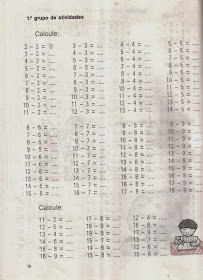 1º grupo de atividades
Calcule:
2 - 2 = 0 3 - 3 = ... 4 - 4 = ... 5 - 5 = ...
3 - 2 = ... 4 - 3 = ... 5 - 4 = ... 6 - 5 = ...
4 - 2 = ... 5 - 3 = ... 6 - 4 = ... 7 - 5 = ...
5 - 2 = ... 6 - 3 = ... 7 - 4 = ... 8 - 5 = ...
6 - 2 = ... 7 - 3 = ... 8 - 4 = ... 9 - 5 = ...
7 - 2 = ... 8 - 3 = ... 9 - 4 = ... 10 - 5 = ...
8 - 2 = ... 9 - 3 = ... 10 - 4 = ... 11 - 5 = ...
9 - 2 = ... 10 - 3 = ... 11 - 4 = ... 12 - 5 = ...
10 - 2 = ... 11 - 3 = ... 12 - 4 = ... 13 - 5 = ...
11 - 2 = ... 12 - 3 = ... 13 - 4 = ... 14 - 5 = ...
6 - 6 = ... 7 - 7 = ... 8 - 8 = ... 9 - 9 = ...
7 - 6 = ... 8 - 7 = ... 9 - 8 = ... 10 - 9 = ...
8 - 6 = ... 9 - 7 = ... 10 - 8 = ... 11 - 9 = ...
9 - 6 = ... 10 - 7 = ... 11 - 8 = ... 12 - 9 = ...
10 - 6 = ... 11 - 7 = ... 12 - 8 = ... 13 - 9 = ...
11 - 6 = ... 12 - 7 = ... 13 - 8 = ... 14 - 9 = ...
12 - 6 = ... 13 - 7 = ... 14 - 8 = ... 15 - 9 = ...
13 - 6 = ... 14 - 7 = ... 15 - 8 = ... 16 - 9 = ...
14 - 6 = ... 15 - 7 = ... 16 - 8 = ... 17 - 9 = ...
15 - 6 = ... 16 - 7 = ... 17 - 8 = ... 18 - 9 = ...
Calcule:
11 - 2 = ... 17 - 8 = ... 12 - 4 = ...